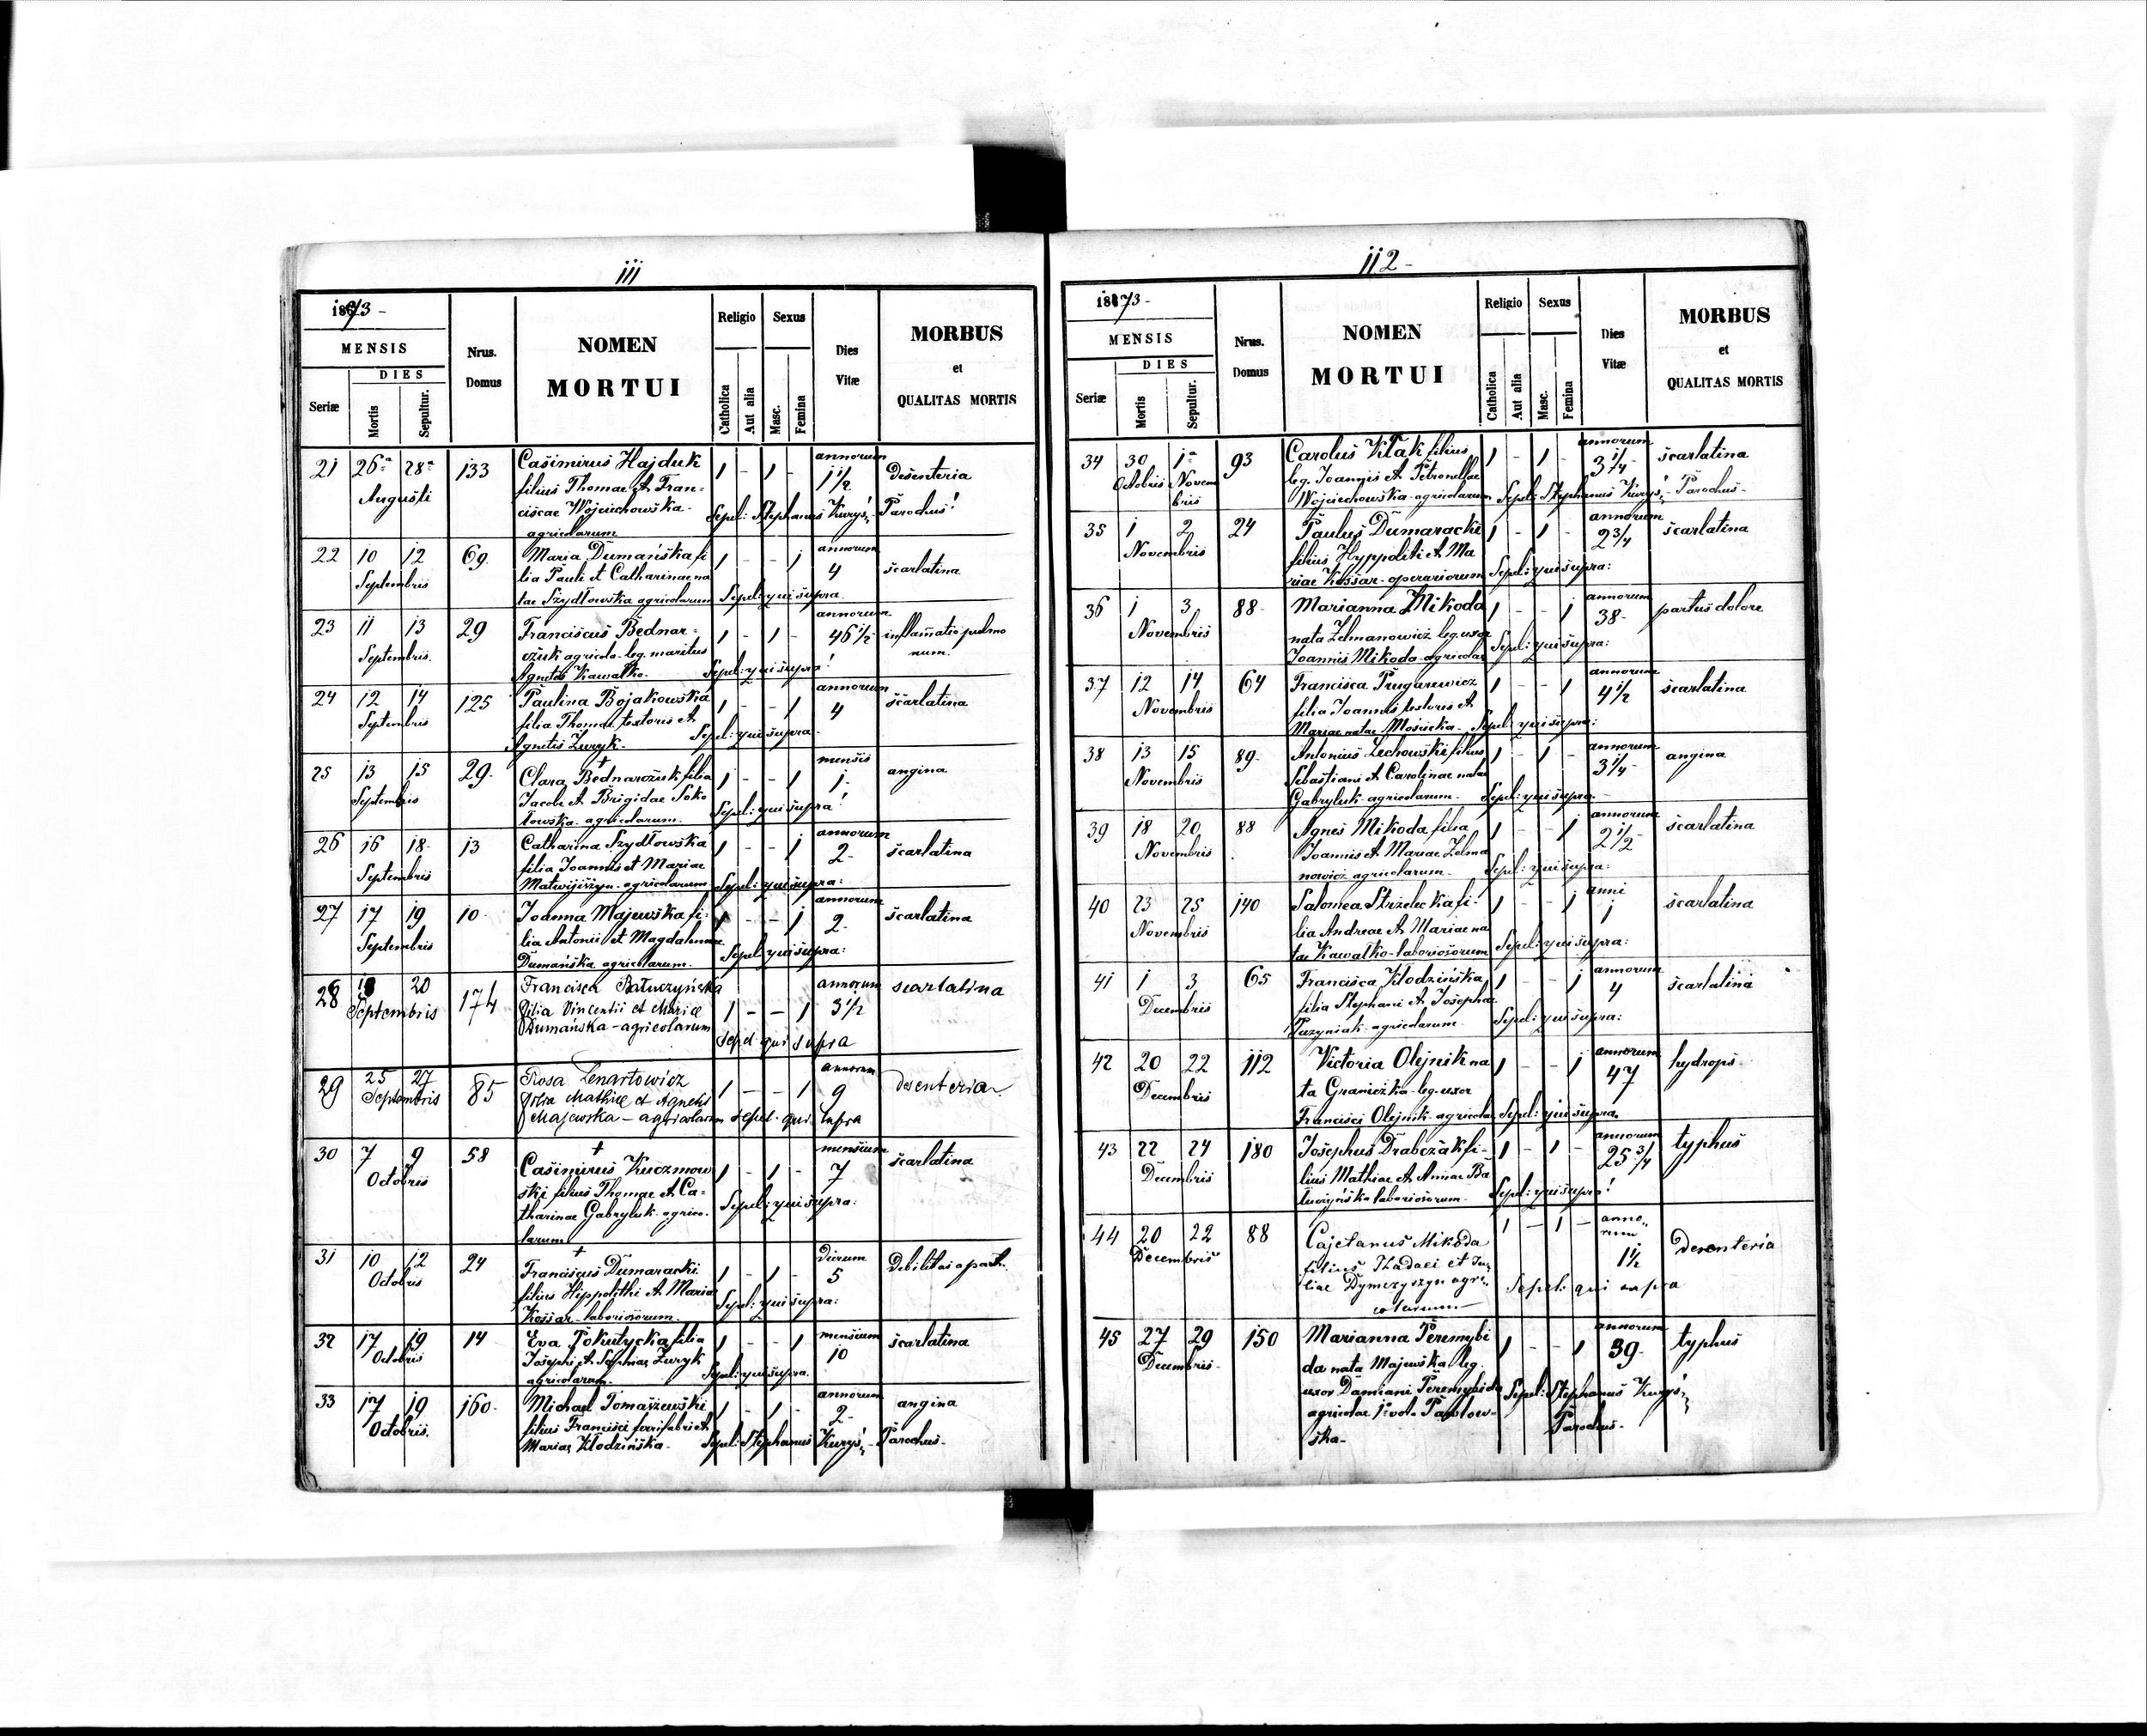 111
1873 -
MENSIS
DIES
Seriæ
Mortis
Sepultur.
Nrus.
Domus
NOMEN
MORTUI
Religio
Catholica
Aut alia
Sexus
Masc.
Femina
Dies
Vitæ
MORBUS
et
QUALITAS MORTIS
21 26ª 28ª 133 Casimirus Hajduk 1 - 1 - annorum 1 1/2 Desenteria
Augusti filius Thomae et Fran=
ciscae Wojciechowska - Sepel: Stephanus Kuryś, Parochus
agricolarum
22 10 12 69 Maria Dumańska fi 1 - - 1 annorum 4 scarlatina
Septembris lia Pauli et Catharinae na
tae Szydłowska agricolarum Sepel: qui supra
23 11 13 29 Franciscus Bednar= 1 - 1 - annorum 46 1/2 inflamatio pulmo
Septembris czuk agricola leg. maritus num.
Agnetis Kawałko Sepel: qui supra
24 12 14 125 Paulina Bojakowska 1 - - 1 annorum 4 scarlatina
Septembris filia Thomae textoris et
Agnetis Zuryk - Sepel: qui supra
25 13 15 29 Clara Bednarczuk filia 1 - - 1 mensis 1 - angina
Septembris Jacobi et Brigidae Soko
łowska agricolarum. Sepel: qui supra
26 16 18 13 Catharina Szydłowska 1 - - 1 annorum 2 - scarlatina
Septembris filia Joannis et Mariae
Matwijiszyn - agricolarum Sepel: qui supra:
27 17 19 10 Joanna Majewska fi= 1 - - 1 annorum 2 - scarlatina
Septembris lia Antonii et Magdalenae
Dumańska agricolarum. Sepel: qui supra:
28 18 20 174 Francisca Batuczyńska 1 - - 1 annorum 3 1/2 scarlatina
Septembris filia Vincentii et Mariae
Dumańska - agricolarum Sepel: qui supra
29 25 27 85 Rosa Lenartowicz 1 - - 1 annorum 9 desenteria
Septembris filia Mathiae et Agnetis
Majewska - agricolarum Sepel: qui supra
30 7 9 58 Casimirus Kuczmow 1 - 1 - mensium 7 scarlatina
Octobris ski filius Thomae et Ca=
tharinae Gabryluk - agrico= Sepel: qui supra:
larum
31 10 12 24 Franciscus Dumaracki 1 - 1 - dierum 5 debilitas a part.
Octobris filius Hippolithi et Mariae
Kossar - laboriosorum. Sepel: qui supra:
32 17 19 14 Eva Pokutycka filia 1 - - 1 mensium 10 scarlatina
Octobris Josephi et Sophiae Zuryk
agricolarum. Sepel: qui supra.
33 17 19 160 Michael Tomaszewski 1 - 1 - annorum 2 - angina
Octobris. filius Francisci ferrifabri et
Mariae Kłodzińska - Sepel: Stephanus Kuryś, - Parochus -
112 -
1873 -
MENSIS
DIES
Seriæ
Mortis
Sepultur.
Nrus.
Domus
NOMEN
MORTUI
Religio
Catholica
Aut alia
Sexus
Masc.
Femina
Dies
Vitæ
MORBUS
et
QUALITAS MORTIS
34 30 1ª 93 Carolus Kłak filius 1 - 1 - annorum 3 1/4 scarlatina
Octobris Novem leg. Joannis et Petronellae
bris Wojciechowska - agricolarum Sepel: Stephanus Kuryś, - Parochus -
35 1 2 24 Paulus Dumaracki 1 - 1 - annorum 2 3/4 scarlatina
Novembris filius Hyppoliti et Ma
riae Kossar - operariorum Sepel: qui supra:
36 1 3 88 - Marianna Mikoda 1 - - 1 annorum 38 - partus dolore
Novembris nata Zelmanowicz leg. uxor
Joannis Mikoda - agricolae Sepel: qui supra:
37 12 14 64 Francisca Prugarewicz 1 - - 1 annorum 4 1/2 scarlatina
Novembris filia Joannis textoris et
Mariae natae Mosiicka - Sepel: qui supra:
38 13 15 89 - Antonius Lechowski filius 1 - 1 - annorum 3 1/4 - angina
Novembris Sebastiani et Carolinae natae
Gabryluk agricolarum - Sepel: qui supra -
39 18 20 88 Agnes Mikoda filia 1 - - 1 annorum 2 1/2 scarlatina
Novembris Joannis et Mariae Zelma
nowicz agricolarum - Sepel: qui supra:
40 23 25 140 Salomea Strzelecka fi= 1 - - 1 anni 1 scarlatina
Novembris lia Andreae et Mariae na
tae Kawałko - laboriosorum Sepel: qui supra:
41 1 3 65 Francisca Kłodzińska 1 - - 1 annorum 4 scarlatina
Decembris filia Stephani et Josephae
Puzyniak agricolarum - Sepel: qui supra:
42 20 22 112 Victoria Olejnik na 1 - - 1 annorum 47 hydrops
Decembris ta Graniczka - leg. uxor
Francisci Olejnik agricolae Sepel: qui supra
43 22 24 180 Josephus Drabczak fi= 1 - 1 - annorum 25 3/4 typhus
Decembris lius Mathiae et Annae Ba
tuczyńska laboriosorum - Sepel: qui supra
44 20 22 88 Cajetanus Mikoda 1 - 1 - anno= rum 1 1/2 Desenteria
Decembris filius Thadaei et Ju=
liae Dymczyszyn agri= Sepel: qui supra
colarum
45 27 29 150 Marianna Peremybi 1 - - 1 annorum 39 - typhus
Decembris - da nata Majewska leg.
uxor Damiani Peremybida Sepel: Stephanus Kuryś,
agricolae Pawłow= Parochus -
ska -